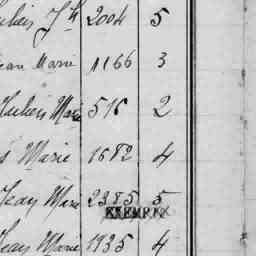 2004 5
Jean Marie 1166 3
Marie 516 2
Marie 1682 4
Jean Marie 2385 5
Jean Marie 1935 4